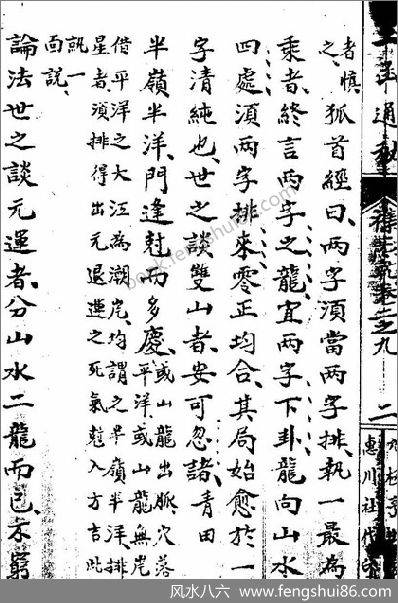 者慎之、狐首經曰、兩字須當兩字排、執一最爲
乘者、終言兩字之龍、宜兩字下卦、龍向山水
四處、須兩字排來、零正均合、其局始愈於一
字清純也、世之談雙山者、安可忽諸、青田
半嶺半洋、門逢尅而多慶、或山龍出脈、穴落平洋、或山龍無岸
借平洋之大江為潮岸、均謂之半嶺半洋、排
星者須排得出元退運之死氣尅入方吉、此
訊一一面説、
論法世之談元運者、分山水二龍而已、不窮
卷之九
二
惠川社代印
风水八六 www.fengshui86.com
book.fengshui86.com